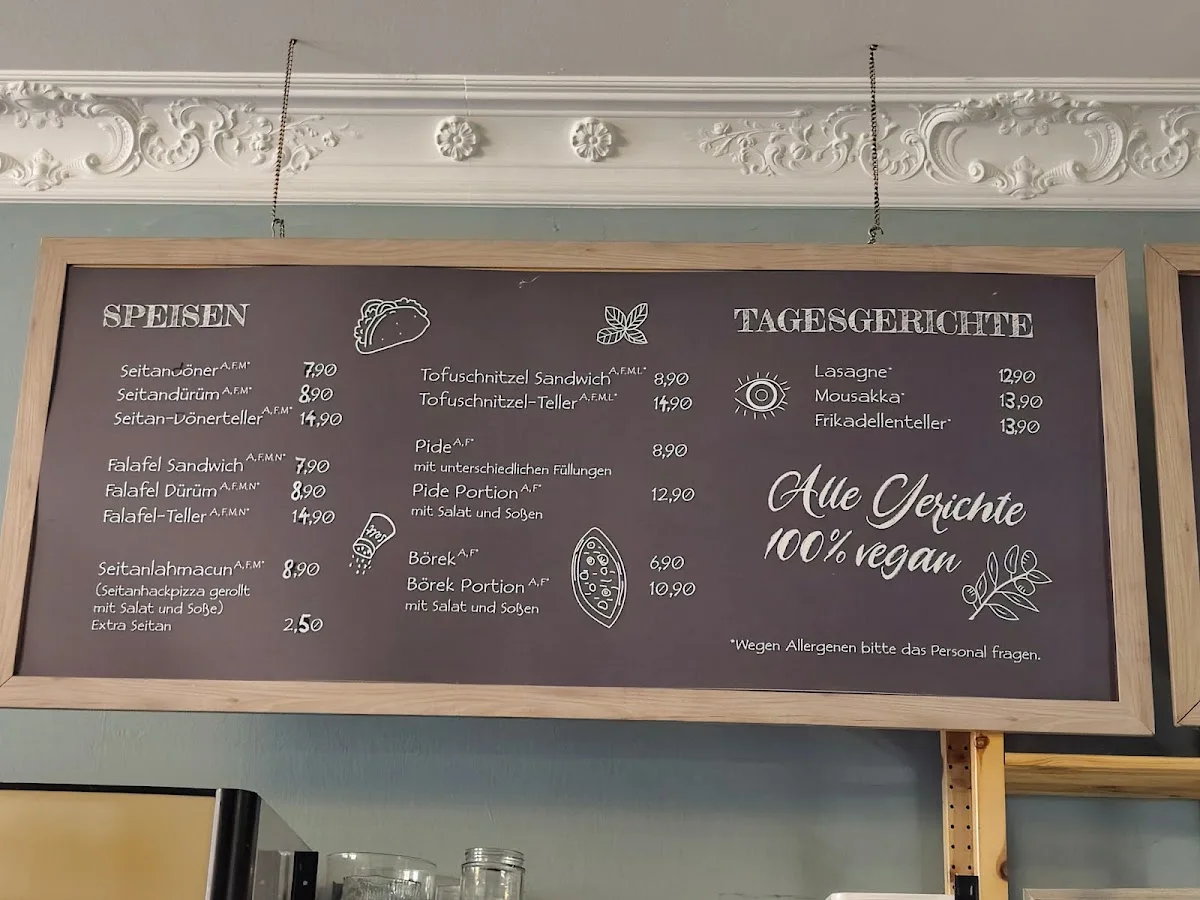 SPEISEN
Seitandöner A,F,M* 7,90
Seitandürüm A,F,M* 8,90
Seitan-Dönerteller A,F,M* 14,90
Falafel Sandwich A,F,M,N* 7,90
Falafel Dürüm A,F,M,N* 8,90
Falafel-Teller A,F,M,N* 14,90
Seitanlahmacun A,F,M* 8,90
(Seitanhackpizza gerollt
mit Salat und Soße)
Extra Seitan 2,50
Tofuschnitzel Sandwich A,F,M,L* 8,90
Tofuschnitzel-Teller A,F,M,L* 14,90
Pide A,F* 8,90
mit unterschiedlichen Füllungen
Pide Portion A,F* 12,90
mit Salat und Soßen
Börek A,F* 6,90
Börek Portion A,F* 10,90
mit Salat und Soßen
TAGESGERICHTE
Lasagne* 12,90
Mousakka* 13,90
Frikadellenteller* 13,90
Alle Gerichte
100% vegan
*Wegen Allergenen bitte das Personal fragen.